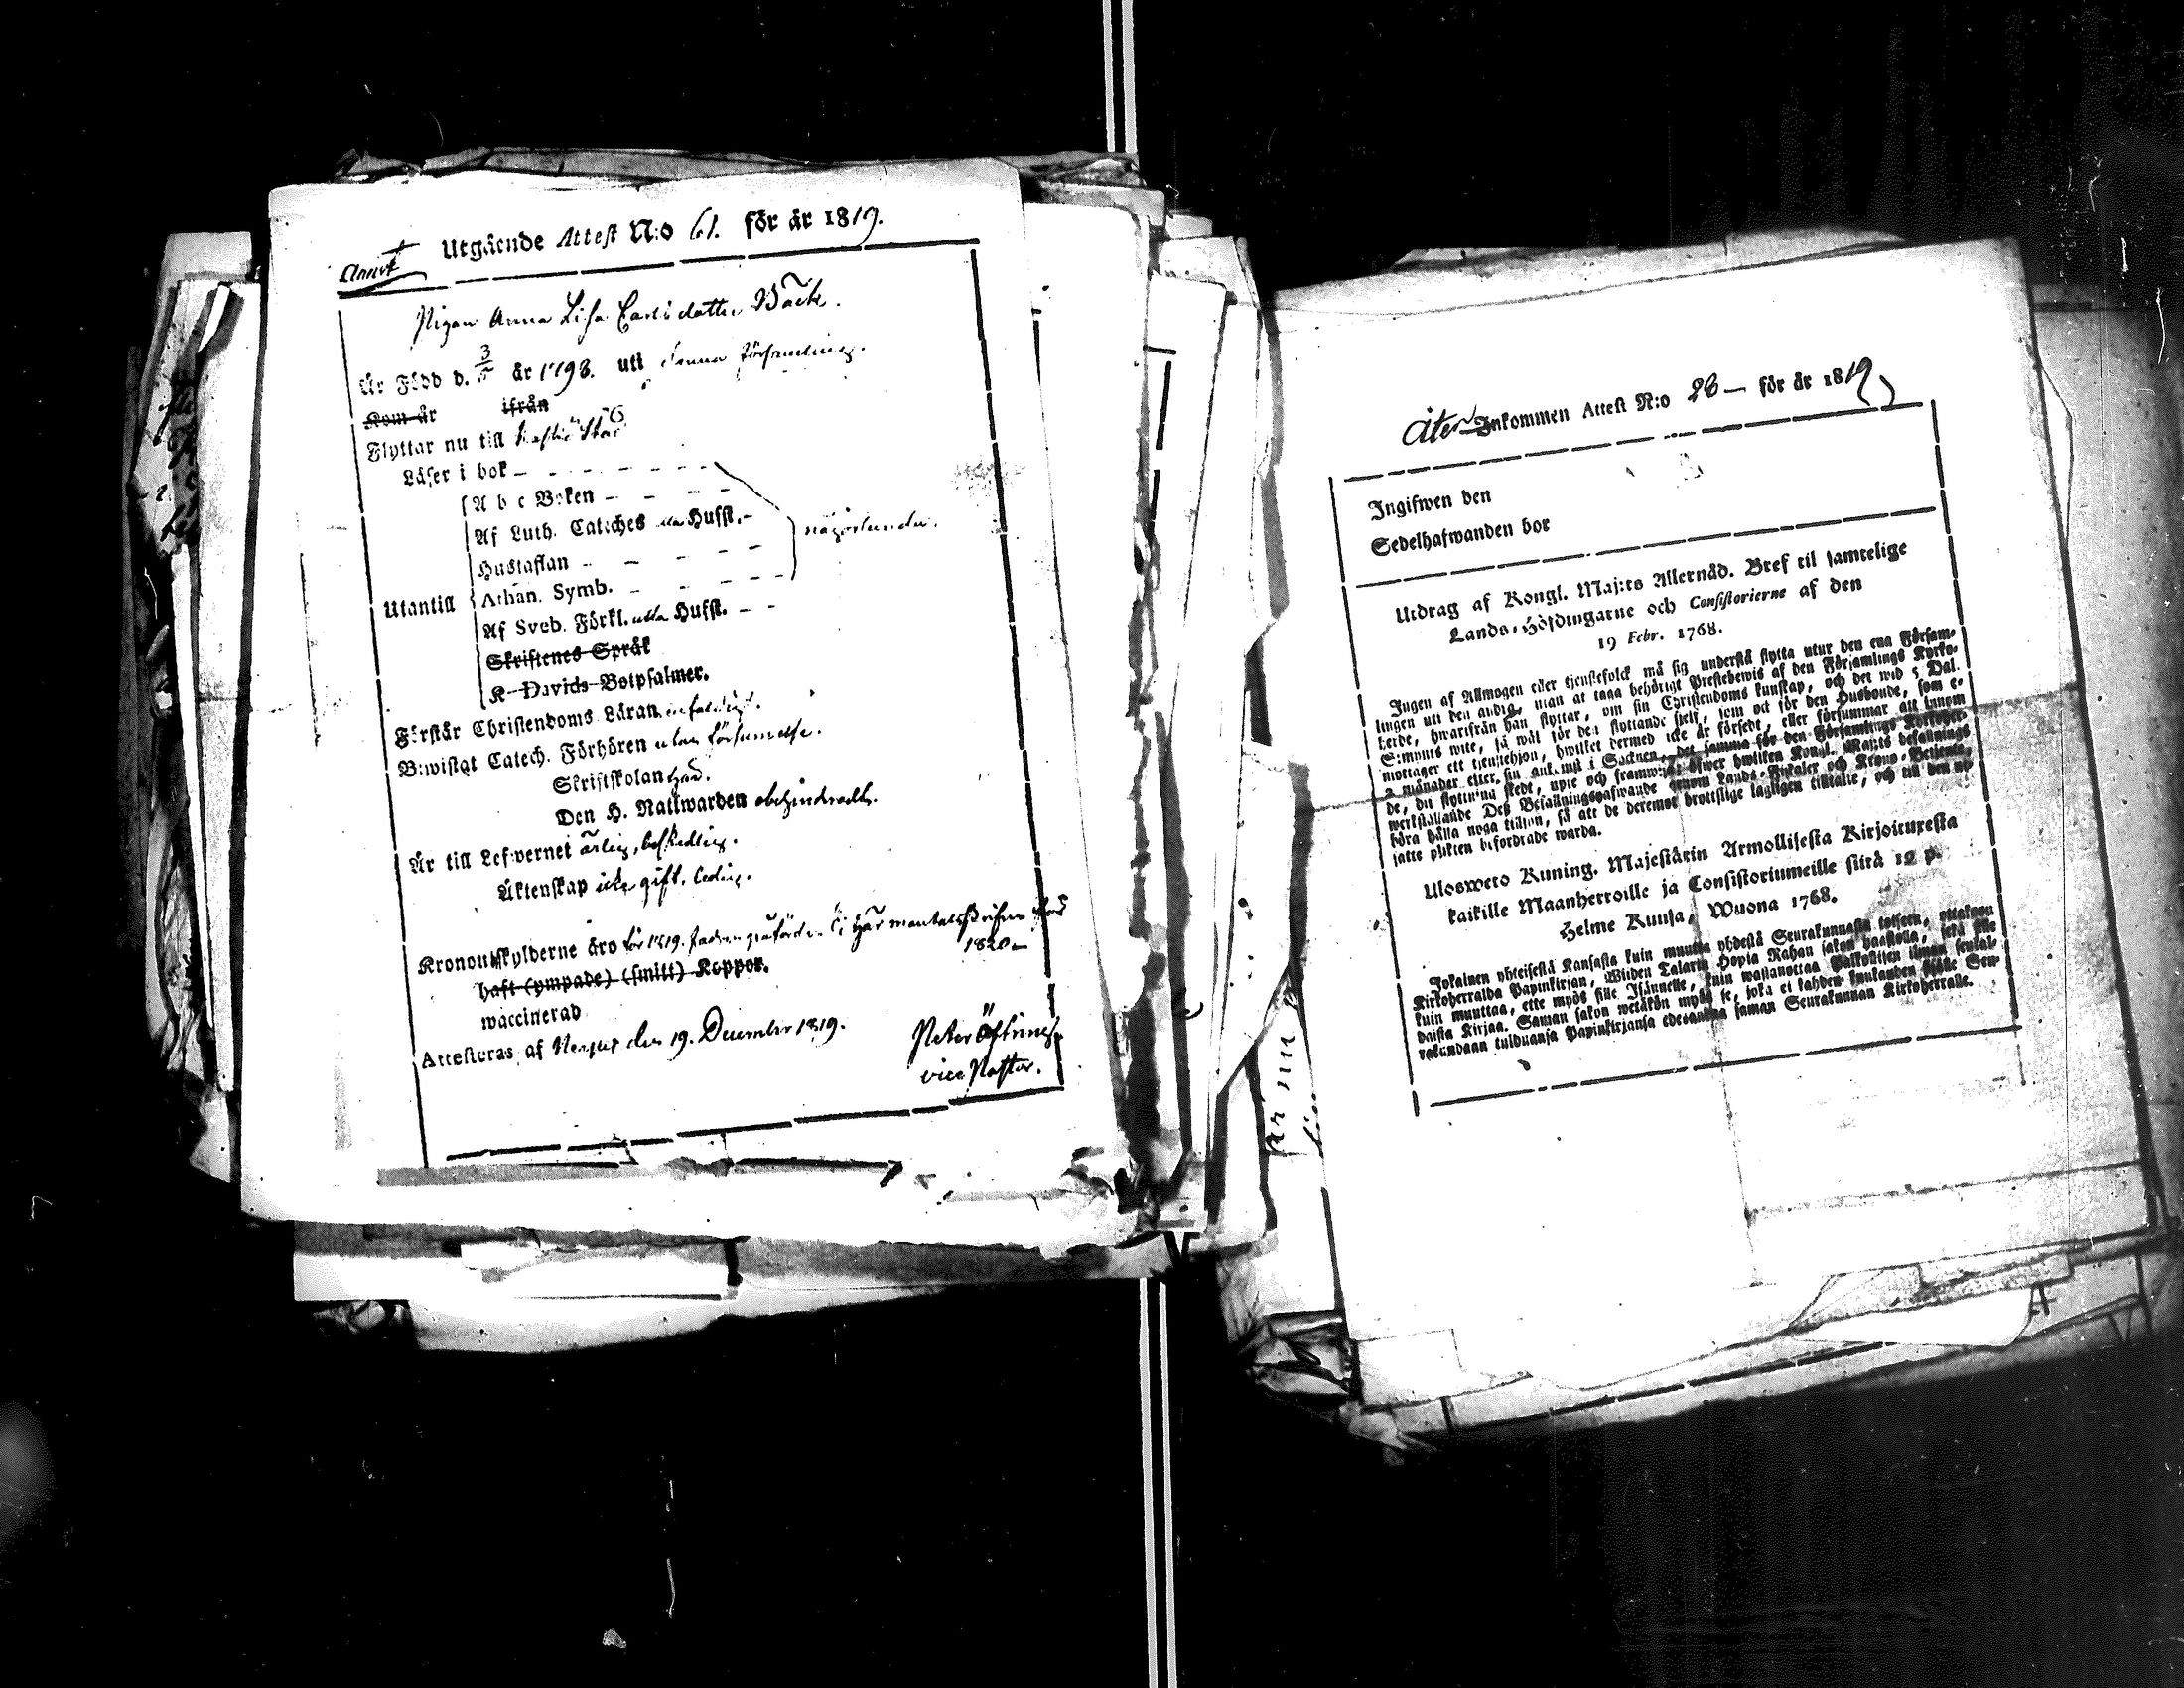 Utgående Attest N:o 61. för år 1819.
Pigan Anna Lisa Carlsdotter Bäck.
Är Född d. 3/5 år 1798. uti denna församling.
Kom år ifrån
Flyttar nu till
Läser i bok - - - - - - -
A b c Boken - - - -
Af Luth. Cateches utan Hufst. -
någorlunda.
Hustaflan - - - - -
Utantill Athan. Symb. - - - - -
Af Sveb. Förkl. utan Hufst. - -
Skriftenes Språk
K Davids Botpsalmer.
Förstår Christendoms Läran enfaldigt.
Bewistat Catech. Förhören utan försummelse.
Skriftskolan
Den H. Nattwarden obehindradt.
Är till Lefwernet ärlig, beskedlig.
Äktenskap icke gift, ledig.
Kronoutskylderne äro för 1819. här mantalsskrifven för
1820
haft (ympade) (smitt) Koppor.
waccinerad
Attesteras af den 19. December 1819.
Peter
vice Pastor.
åter Inkommen Attest N:o 28 - för år 1819
Ingifwen den
Sedelhafwanden bor
Utdrag af Kongl. Maj:ts Allernåd. Bref til samtelige
Lands-Höfdingarne och Consistorierne af den
19 Febr. 1768.
Ingen af Allmogen eller tjenstefolck må sig understå flytta utur den ena Försam-
lingen uti den andra, utan at taga behörigt Prestebewis af den Församlings Kyrko-
herde, hwarifrån han flyttar, om sin Christendoms kunskap, och det wid 5 Dal.
S:mynts wite, så wäl för den flyttande sjelf, som ock för den Husbonde, som e-
mottager ett tjenstehjon, hwilket dermed icke är försedt, eller försummar att innom
2 månader efter sin ankomst i Socknen, det samma för den Församlings Kyrkoher-
de, dit flyttning skedt, upte och framwisa; öfwer hwilken Kongl. Maj:ts befallnings
werkställande Dess Befallningshafwande genom Lands-Fiskaler och Krono-Betjente,
böra hålla noga tillsyn, så att de deremot brottslige lagligen tilltalte, och till den ut-
satte plikten befordrade warda.
Uloswero Kuning. Majestätin Armollisesta Kirjoituxesta
kaikille Maanherroille ja Consistoriumeille siitä 19 p.
Helme Kuusa, Wuona 1768.
Jokainen yhteisestä Kansasta kuin muutta yhdestä Seurakunnasta toiseen, ottakoon
Kirkoherralda Papinkirjan, Wiiden Talarin Hopia Rahan sakon haastolla, sekä sille
kuin muuttaa, ette myös sille Isännelle, kuin wastanottaa Palkollisen ilman senkal-
daista Kirjaa. Saman sakon wetäkön myös se, joka ei kahden kuukauden sisälle Seu-
rakundaan tulduansa Papinkirjansa edesanna saman Seurakunnan Kirkoherralle.